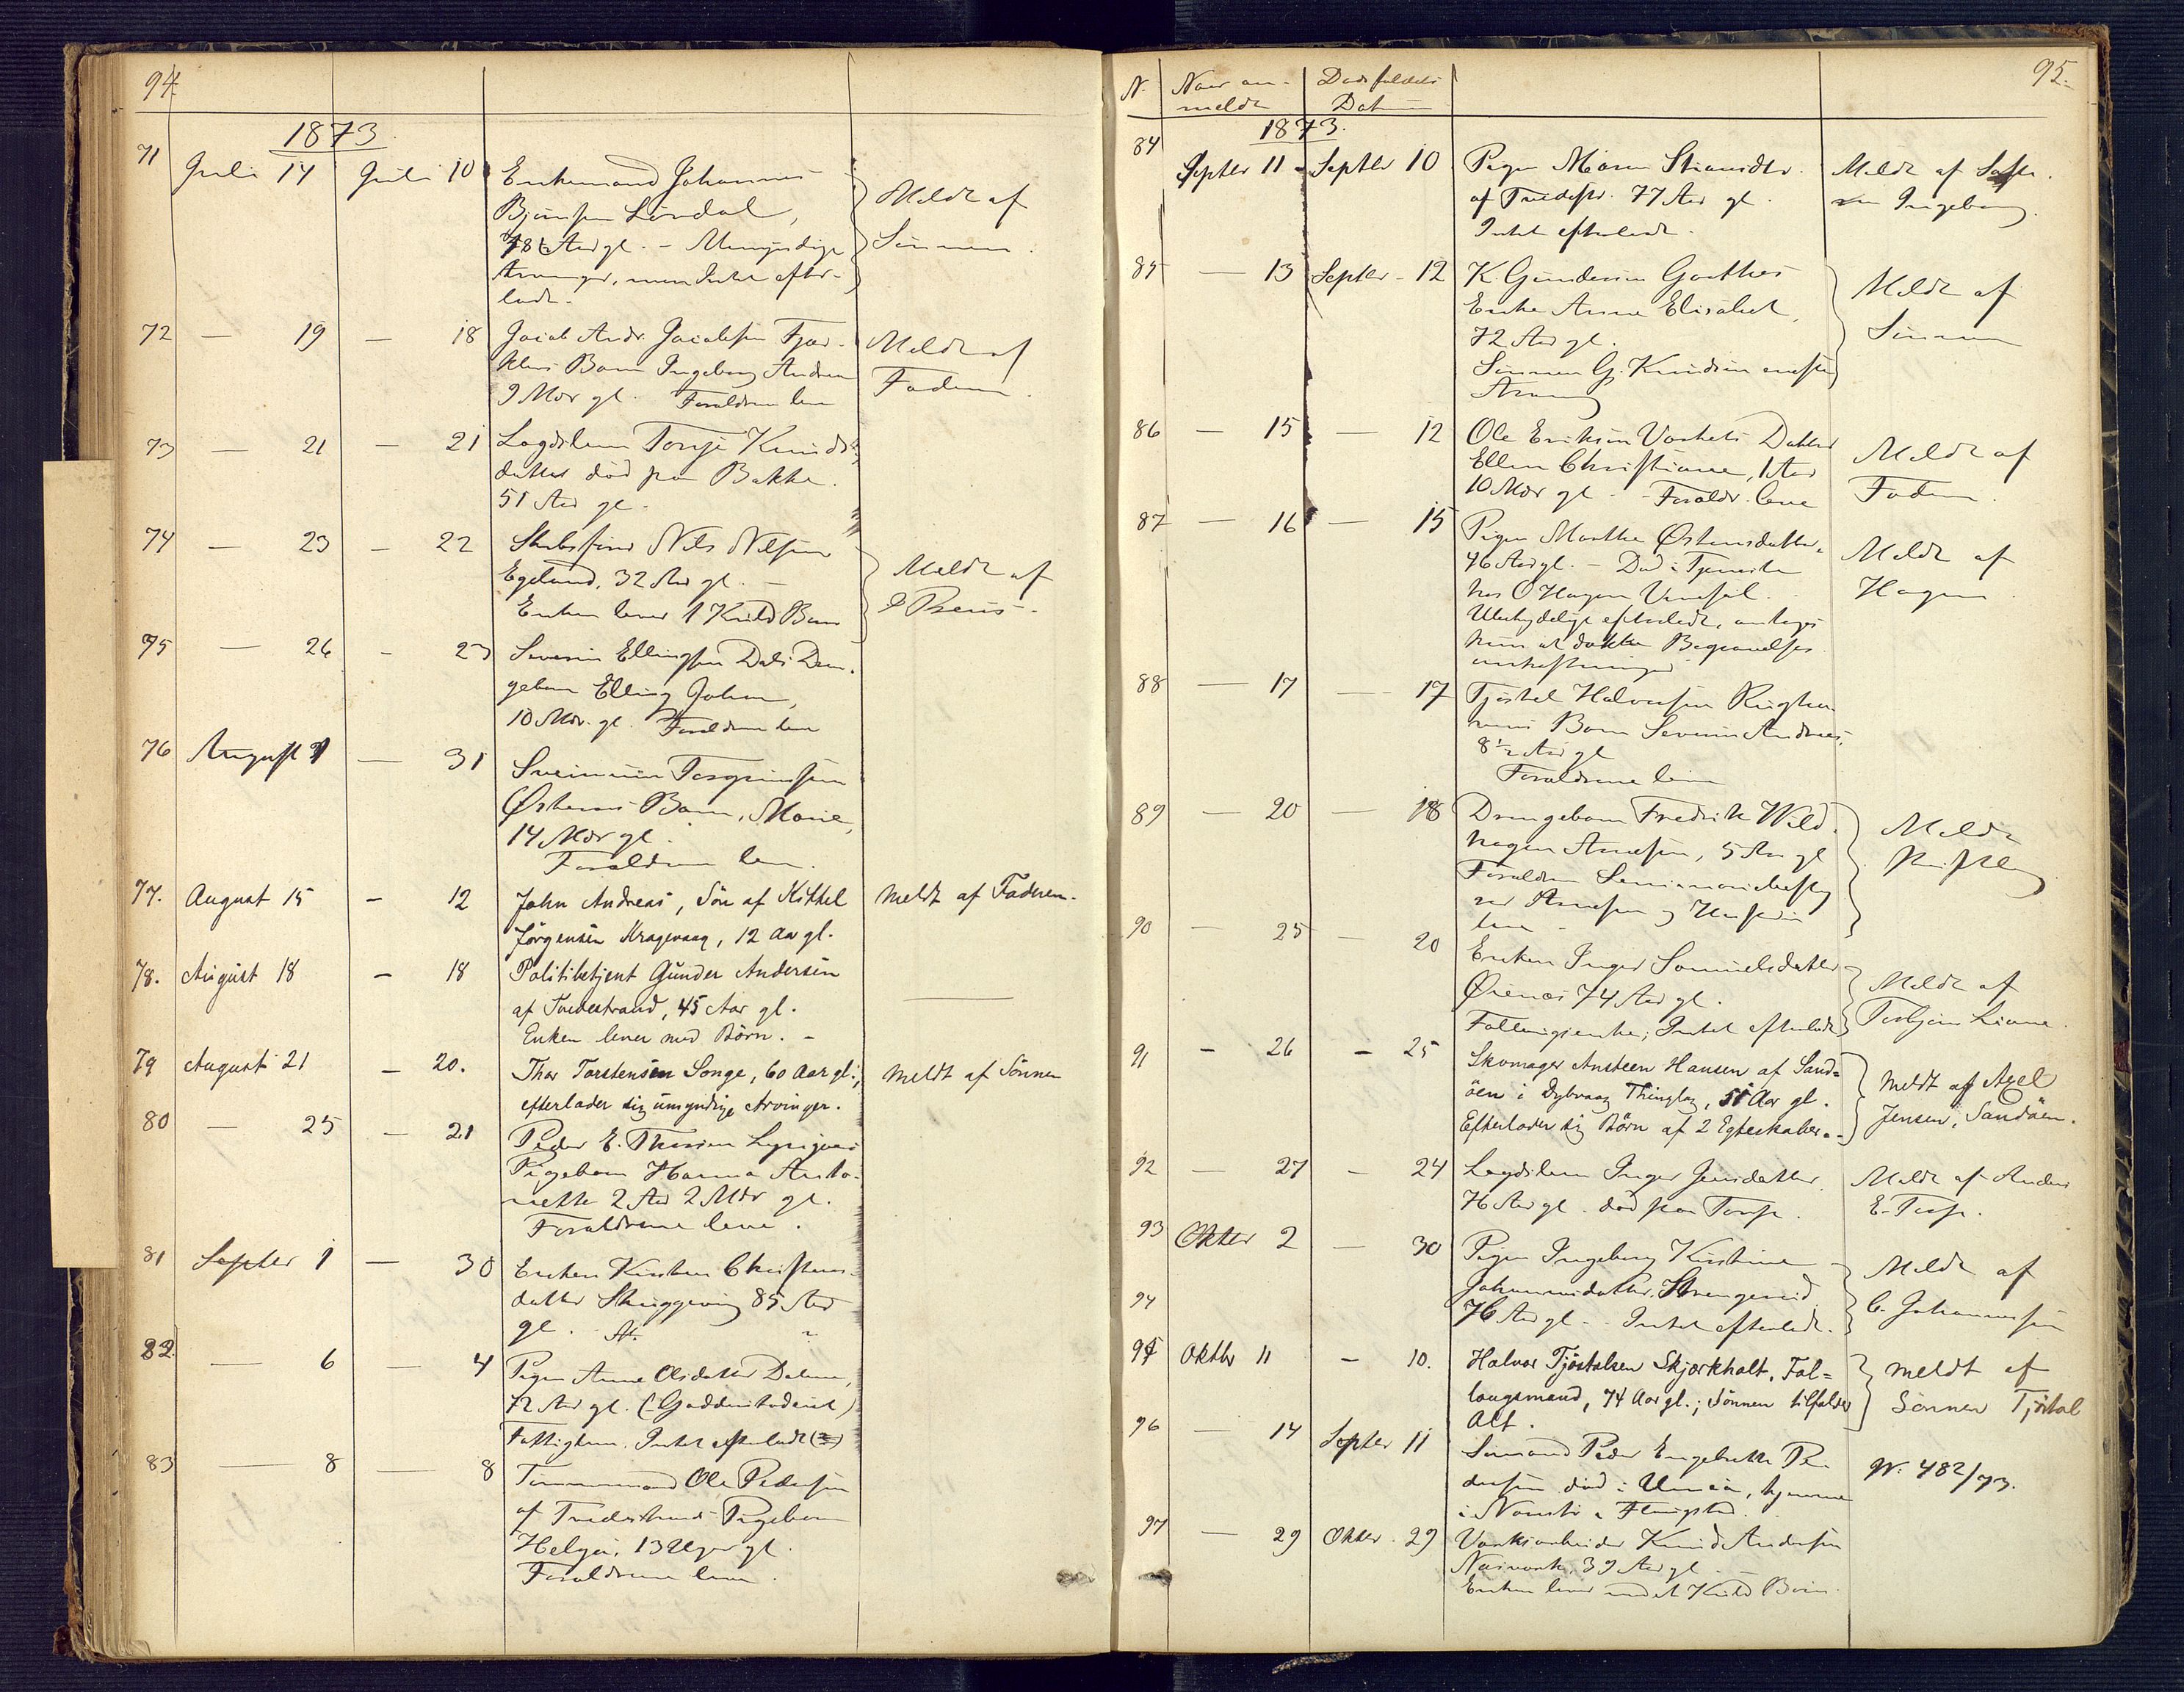 94.
1873.
71 Juli 14 Juli 10 Enkemand Johannes
Bjørnsen Løvdal,
78 Aar gl. – Myndige
Arvinger, men Intet efter-
ladt.
Meldt af
Sønnen.
72 — 19 — 18 Jacob Andr. Jacobsen
Barn Ingeborg Andrea
9 Mdr gl. Forældrene leve
Meldt af
Faderen.
73 — 21 — 21 Lægdslem Torje Knuds-
datter død paa Bakke.
51 Aar gl.
74 — 23 — 22 Skibsfører Nils Nilsen
Egeland, 32 Aar gl. –
Enken lever 1 Kuld Børn
Meldt af
75 — 26 — 23 Severin Ellingsen Dals Dren-
gebarn Elling Johan,
10 Mdr. gl. Forældrene leve
76 August 1 — 31 Torgrimsen
Østerens Barn, Marie,
14 Mdr gl.
Forældrene leve.
77. August 15 – 12 John Andreas, Søn af Kittel
Jørgensen Kragevaag, 12 Aar gl.
Meldt af Faderen.
78. August 18 – 18 Politibetjent Gunder Andersen
af Tvedestrand, 45 Aar gl.
Enken lever med Børn. –
79 August 21 – 20. Thor Torstensen Songe, 60 Aar gl.,
efterlader sig umyndige Arvinger.
Meldt af Sønnen
80 — 25 – 21 Peder E. Thorsen
Pigebarn Hanna Anto-
nette 2 Aar 2 Mdr gl.
Forældrene leve.
81 Septbr 1 — 30 Enken Kirsten Christens-
datter Skuggevig 85 Aar
gl.
82. — 6 — 4 Pigen Anne Olsdatter Dalene,
72 Aar gl.
Fattiglem. Intet efterladt
83 — 8 — 8 Tømmermand Ole Pedersen
af Tvedestrands Pigebarn
Helga, 13 Uger gl.
Forældrene leve.
95.
N. Naar an-
meldt
Dødsfaldets
Datum
1873.
84 Septbr 11 – Septbr 10 Pigen Maren
af Tvedestr. 77 Aar gl.
Intet efterladt.
Meldt af
Ingeborg.
85 — 13 Septbr – 12 K. Gundersen Goderstad
Enke Anne Elisabet,
72 Aar gl.
Sønnen G. Knudsen eneste
Arving
Meldt af
Sønnen
86 — 15 — 12 Ole Eriksen Datter
Ellen Christiane, 1 Aar
10 Mdr gl. – Forældr. leve
Meldt af
Faderen.
87 — 16 — 15 Pigen Marthe Østensdatter,
46 Aar gl. – Død i Tjeneste
hos O Hagen
Ubetydeligt efterladt, antages
kun at dække Begravelses
omkostninger
Meldt af
Hagen.
88 — 17 — 17 Tjøstel Halvorsen
Barn Severin Andreas,
8½ Aar gl
Forældrene leve
89 — 20 — 18 Drengebarn Fredrik Wild-
hagen Arnesen, 5 Aar gl
Forældrene
Arnesen og Hustru
leve –
Meldt
skriftlig
90 — 25 — 20 Enken Inger Samuelsdatter
Ørenes 74 Aar gl.
Follaugsenke, Intet efterladt
Meldt af
Torbjørn Liane.
91 – 26 – 25 Skomager Ansteen Hansen af Sand=
øen i Dybvaag Thinglag, 51 Aar gl.
Efterlader sig Børn af 2 Egteskaber. –
Meldt af Axel
Jensen, Sandøen.
92 — 27 – 24 Lægdslem Inger Jensdatter,
76 Aar gl. død paa Torp.
Meldt af Anders
E. Torp.
93 Oktbr 2 — 30 Pigen Ingeborg Kirstine
Johannesdatter,
76 Aar gl. – Intet efterladt.
Meldt af
C. Johannessen
94
95 Oktbr 11 – 10. Halvor Tjøstelsen Skjærkholt, Fol=
laugsmand, 74 Aar gl.; Sønnen tilfalder
Alt.
Meldt af
Sønnen Tjøstel
96 — 14 Septbr 11 Sømand Peder Engebrekt Pe-
dersen død i Umeå, hjemme
i
N. 482/73.
97 — 29 Oktbr. 29 Værksarbeider Knud Andersen
Næsværk, 39 Aar gl.
Enken lever med et Kuld Børn.